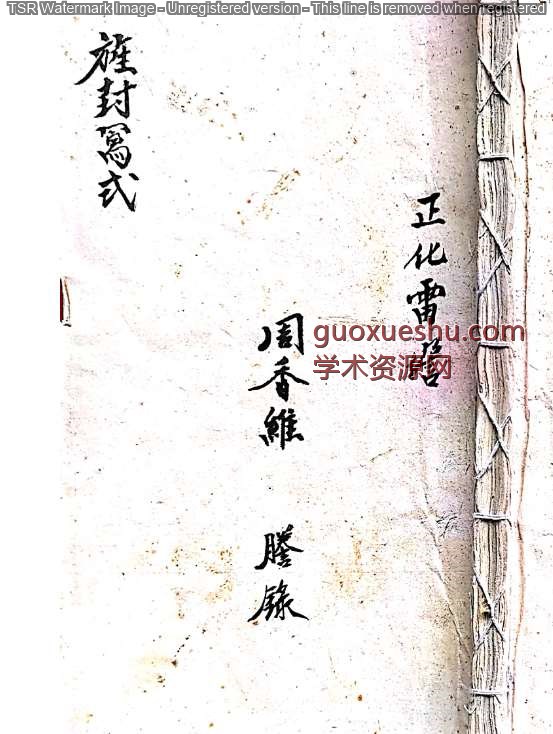 TSR Watermark Image - Unregistered version - This line is removed when registered
正化雷
周香維 謄錄
旌封冩式
guoxueshu.com
学术资源网